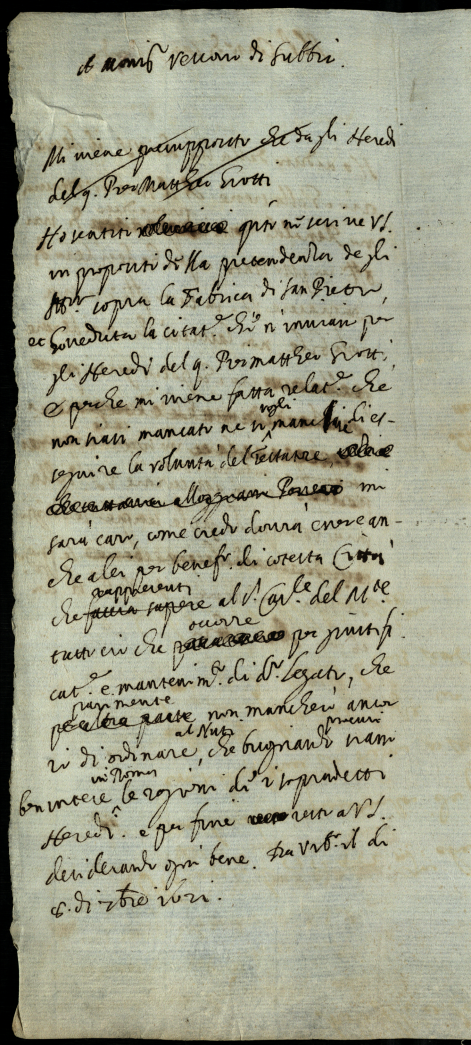 A Mons.r Vescovo di Gubbio.
Mi viene presupposto che dagli Heredi
del q. Pier Mattheo Grotti
Ho sentito quto mi scrive VS.
in proposito della pretendenza degli
sopra la Fabrica di San Pietro,
et ho veduta la citat.e che s'inviava per
gli Heredi del q. Piermattheo Grotti,
e perche mi viene fatta relat.e che
non siasi mancato ne si vogli mancare di es-
seguire la volontà del testatore, mi
sarà caro, come credo dovrà essere an-
che a lei per benef.o di cotesta Città
che rappresenti al S.r Car.le del M.te
tutto ciò che occorre per giustifi-
cat.e e mantenim.to di d.o Legato, che
parimente non mancherò ancor
io di ordinare al Nuti, che bisognando procuri siano
ben intese in Roma le ragioni di sopradetti
Heredi. e per fine resto a VS.
desiderando ogni bene. Da Urb.o il di
8. di 7bre 1621.